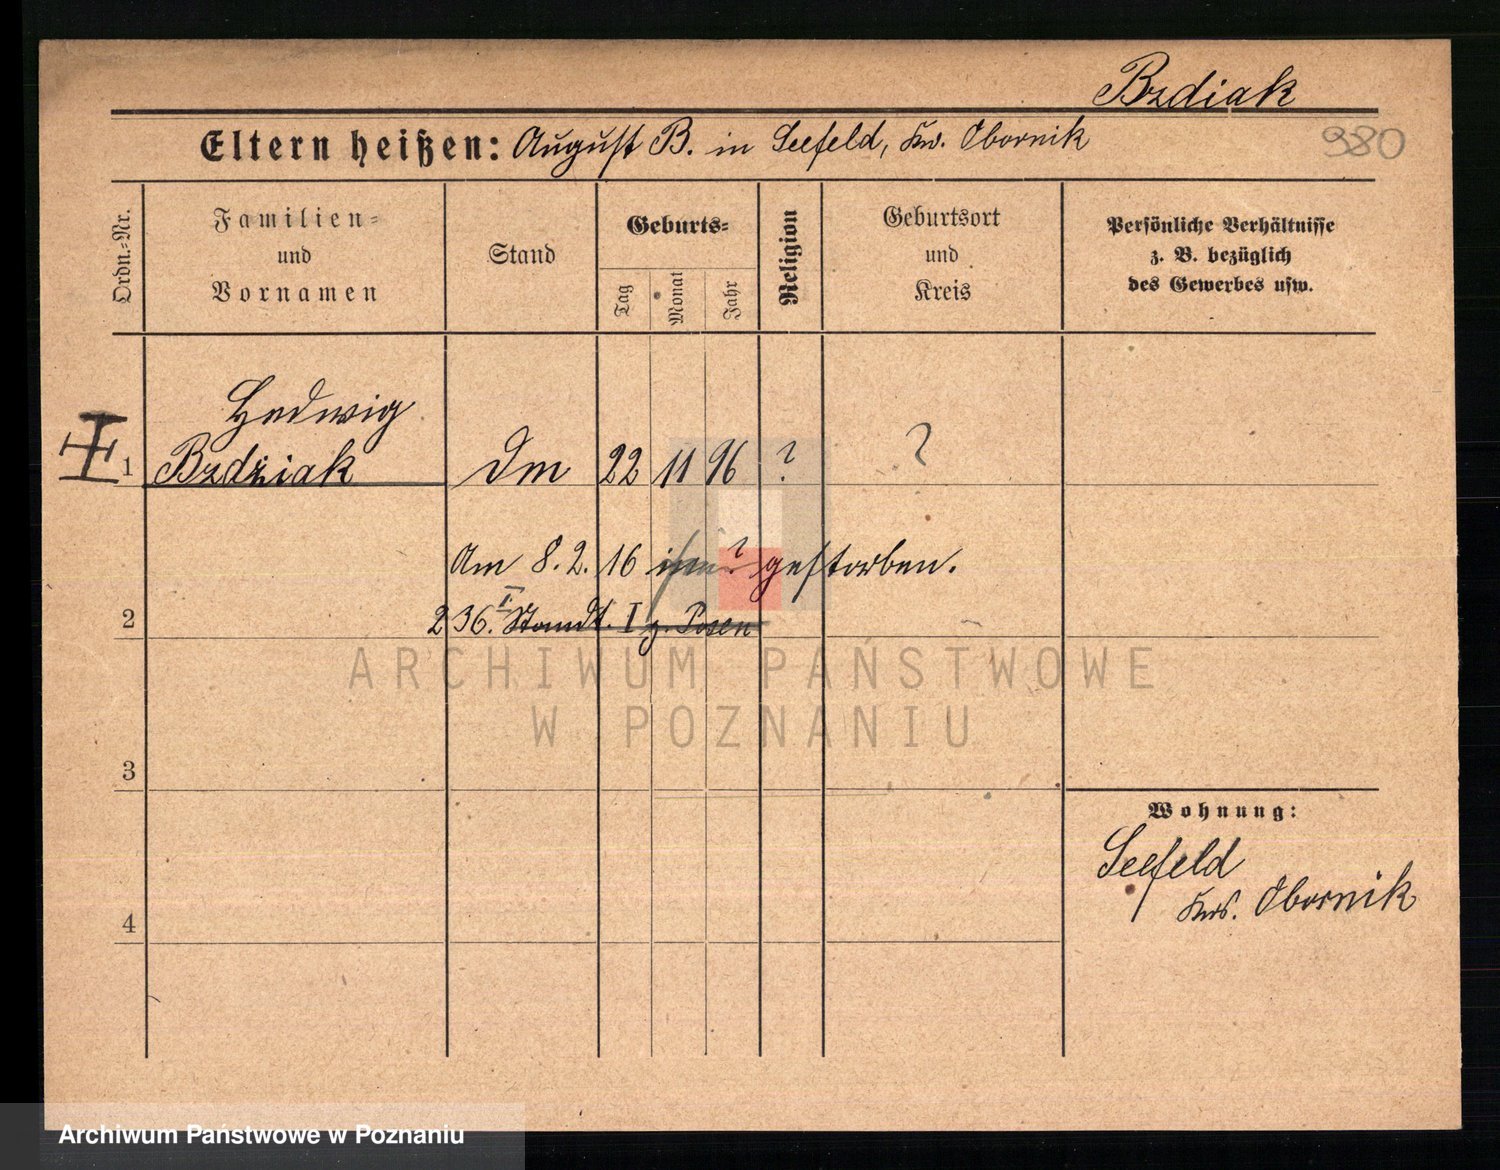 Bzdiak
Eltern heißen: August B. in Seefeld, Krs. Obornik
980
Ordn.-Nr.
Familien-
und
Vornamen
Stand
Geburts-
Tag
Monat
Jahr
Religion
Geburtsort
und
Kreis
Persönliche Verhältnisse
z. B. bezüglich
des Gewerbes usw.
Hedwig
1 Bzdziak Dm 22 11 96 ? ?
Am 8. 2. 16 ? gestorben.
236. I. Standt. I z. Posen
2
ARCHIWUM PAŃSTWOWE
W POZNANIU
3
Wohnung:
Seefeld
Krs. Obornik
4
Archiwum Państwowe w Poznaniu